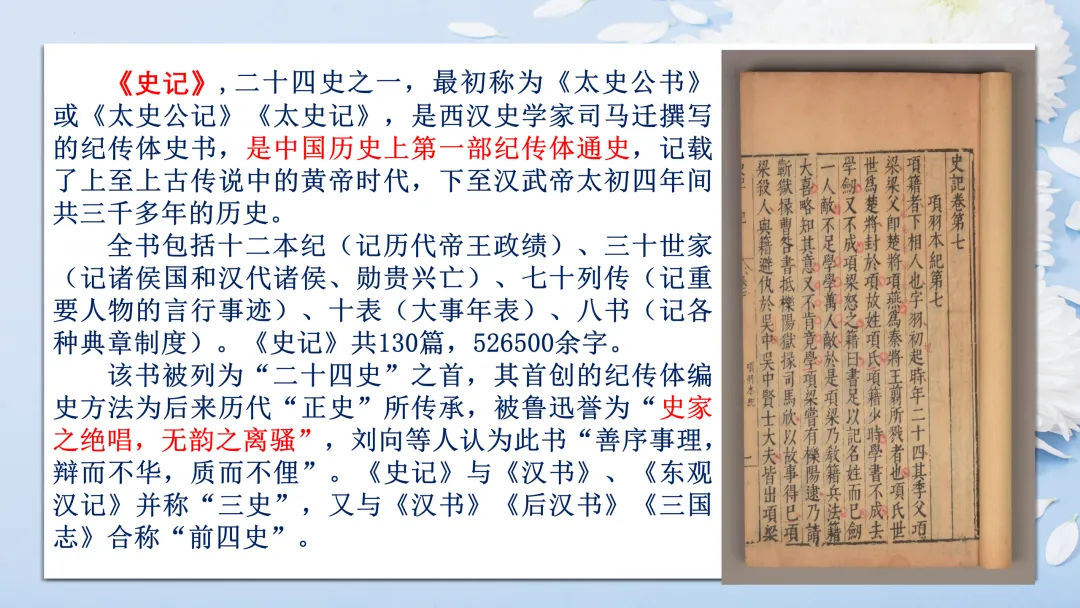 《史记》,二十四史之一，最初称为《太史公书》
或《太史公记》《太史记》，是西汉史学家司马迁撰写
的纪传体史书，是中国历史上第一部纪传体通史，记载
了上至上古传说中的黄帝时代，下至汉武帝太初四年间
共三千多年的历史。
全书包括十二本纪（记历代帝王政绩）、三十世家
（记诸侯国和汉代诸侯、勋贵兴亡）、七十列传（记重
要人物的言行事迹）、十表（大事年表）、八书（记各
种典章制度）。《史记》共130篇，526500余字。
该书被列为“二十四史”之首，其首创的纪传体编
史方法为后来历代“正史”所传承，被鲁迅誉为“史家
之绝唱，无韵之离骚”，刘向等人认为此书“善序事理，
辩而不华，质而不俚”。《史记》与《汉书》、《东观
汉记》并称“三史”，又与《汉书》《后汉书》《三国
志》合称“前四史”。
史記卷第七
項羽本紀第七
項籍者下相人也字羽初起時年二十四其季父項
梁梁父即楚將項燕爲秦將王翦所戮者也項氏世
世爲楚將封於項故姓項氏項籍少時學書不成去
學劒又不成項梁怒之籍曰書足以記名姓而已劒
一人敵不足學學萬人敵於是項梁乃敎籍兵法籍
大喜略知其意又不肯竟學項梁嘗有櫟陽逮乃請
蘄獄掾曹咎書抵櫟陽獄掾司馬欣以故事得已項
梁殺人與籍避仇於吳中吳中賢士大夫皆出項梁